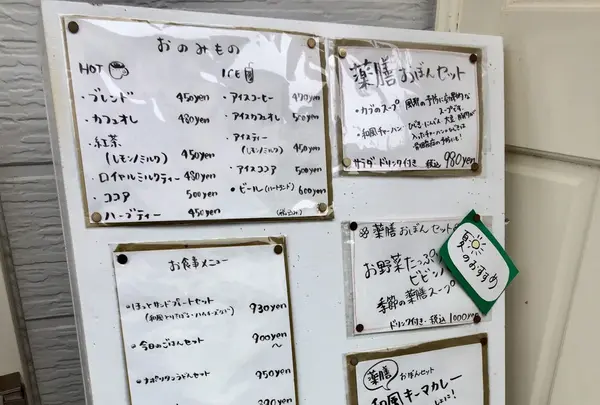 おのみもの
HOT
ICE
・ブレンド 450yen
・カフェオレ 480yen
・紅茶
(レモン/ミルク) 450yen
・ロイヤルミルクティー 480yen
・ココア 500yen
・ハーブティー 450yen
・アイスコーヒー 470yen
・アイスカフェオレ 500yen
・アイスティー
(レモン/ミルク) 450yen
・アイスココア 500yen
・ビール(ハートランド) 600yen
(税込)
薬膳おぼんセット
・カブのスープ
・和風チャーハン
サラダ ドリンク付き 税込 980yen
薬膳おぼんセット
お野菜たっぷり
ビビン
季節の薬膳スープ
ドリンク付き・税込 1000yen
夏
のおすすめ
お食事メニュー
・ほっとサンドプレートセット 930yen
・今日のごはんセット 900yen
〜
・ナポリタンうどんセット 950yen
390yen
薬膳 おぼんセット
和風キーマカレー